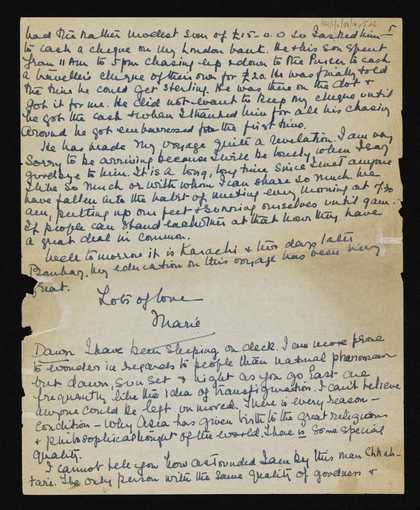 had the rather modest sum of £15-0.0 so I asked him
to cash a cheque on my London bank. He & his son spent
from 11 AM to 5 pm chasing up & down to the Purser to cash
a traveller's cheque of their own for £20. He was finally told
the time he could get Sterling. He was there on the dot &
got it for me. He did not want to keep my cheque until
he got the cash & when I thanked him for all his chasing
around he got embarrassed for the first time.
He has made my voyage quite a revelation. I am very
sorry to be arriving because I will be lonely when I say
goodbye to him. It is a long, long time since I met anyone
I like so much or with whom I can share so much. We
have fallen into the habit of meeting every morning at 7/30
am, putting up our feet & sunning ourselves until 9 am.
If people can stand each other at that hour they have
a great deal in common.
Well tomorrow it is Karachi & two days later
Bombay. My education on this voyage has been very
great.
Lots of love
Marie
Dawn I have been sleeping on deck. I am more prone
to wonders in regards to people than natural phenomenon
but dawn, sunset & night as you go East are
frequently like the idea of transfiguration. I can't believe
anyone could be left unmoved. There is every reason -
condition - why Asia has given birth to the great religions
& philosophical thought of the world. There is some special
quality.
I cannot tell you how astounded I am by this man
tare. The only person with the same quality of goodness &